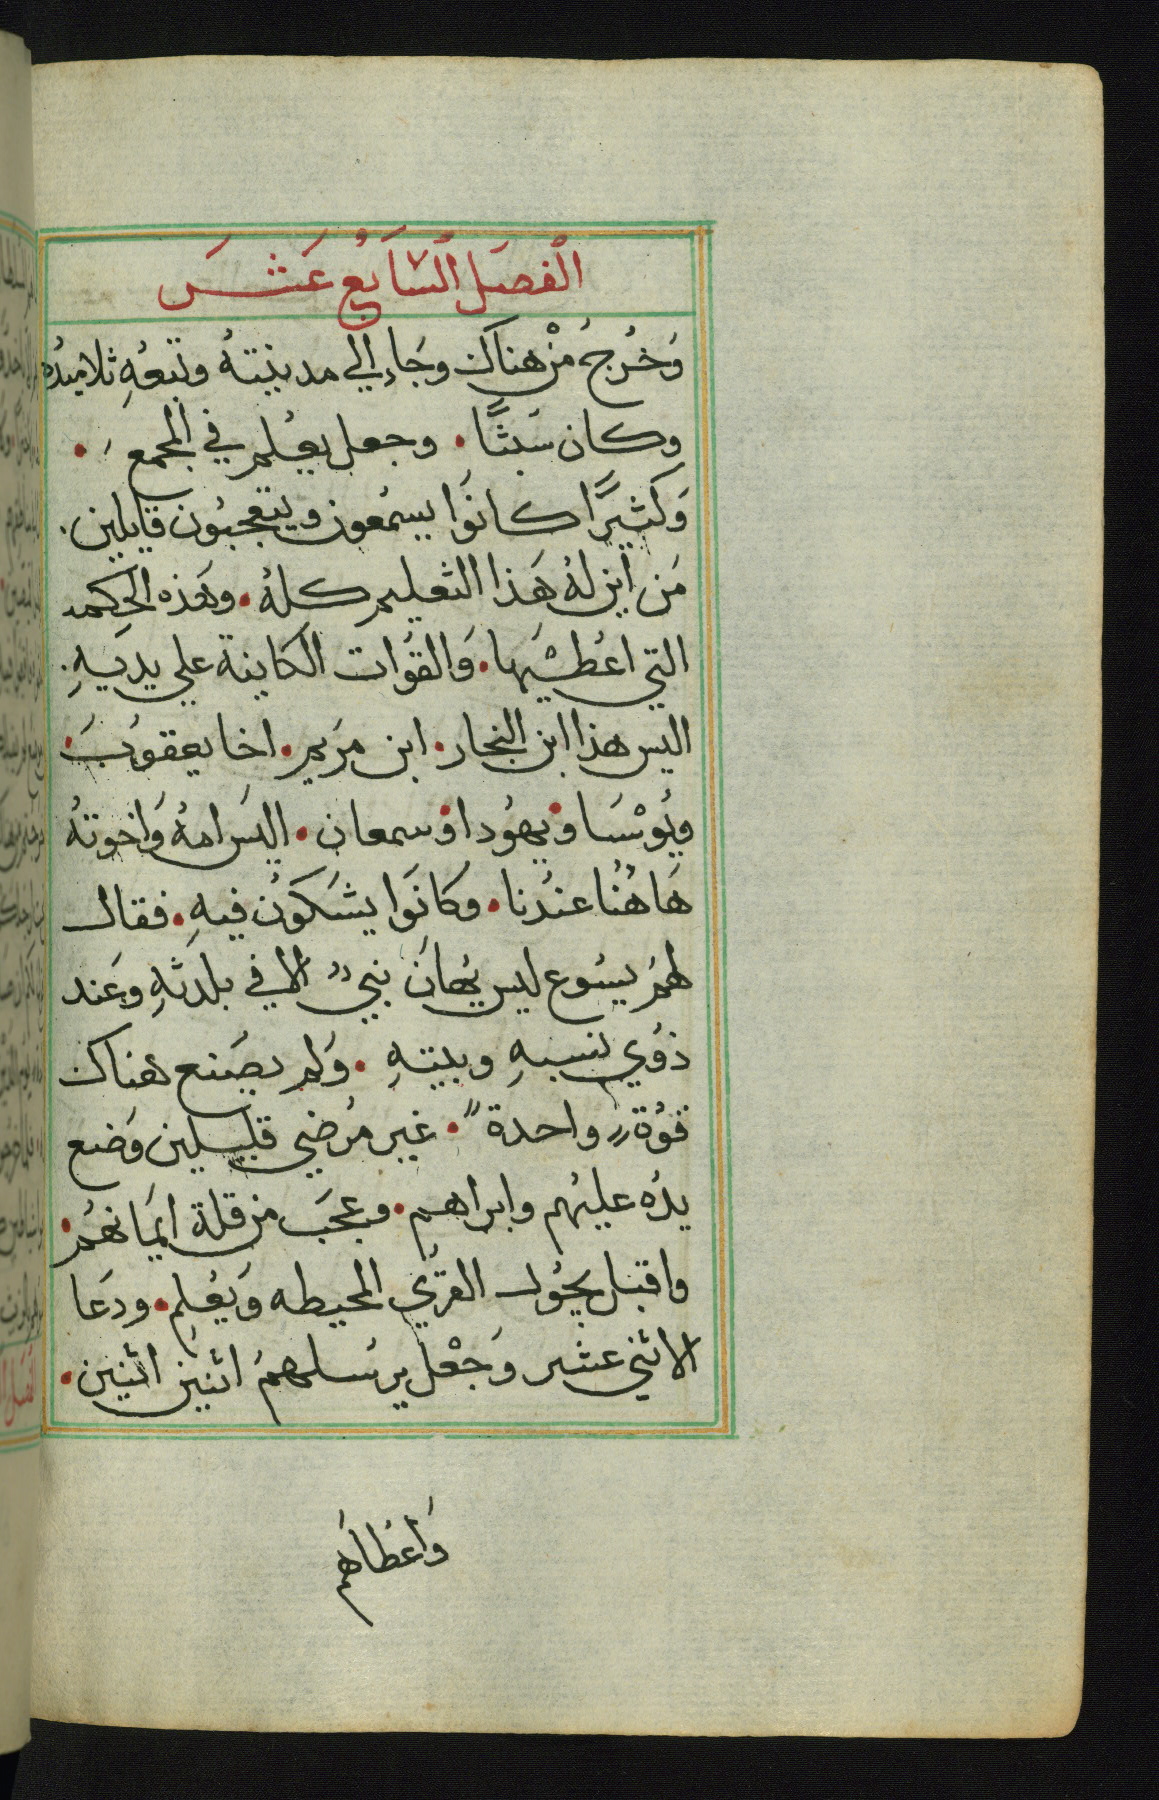 الفصل السابع عشر
وخرج من هناك وجاء الي مدينته وتبعه تلاميده
وكان سبتًا • وجعل يعلم في المجمع •
وكثيرًا كانوا يسمعون ويتعجبون قايلين •
من اين له هذا التعليم كله • وهذه الحكمه
التي اعطيها • والقوات الكاينة علي يديه •
اليس هذا ابن النجار • ابن مريم • اخا يعقوب •
ويوسا • ويهودا • وسمعان • اليس امه واخوته
هاهنا عندنا • وكانوا يشكون فيه • فقال
لهم يسوع ليس يهان نبيٌ الا في بلدته وعند
ذوي نسبه وبيته • ولم يصنع هناك
قوةً واحدةً • غير مرضي قليلين وضع
يده عليهم وابراهم • وعجب من قلة ايمانهم •
واقبل يجول القري المحيطه ويعلم • ودعا
الاثني عشر وجعل يرسلهم اثنين اثنين •
واعطاهم